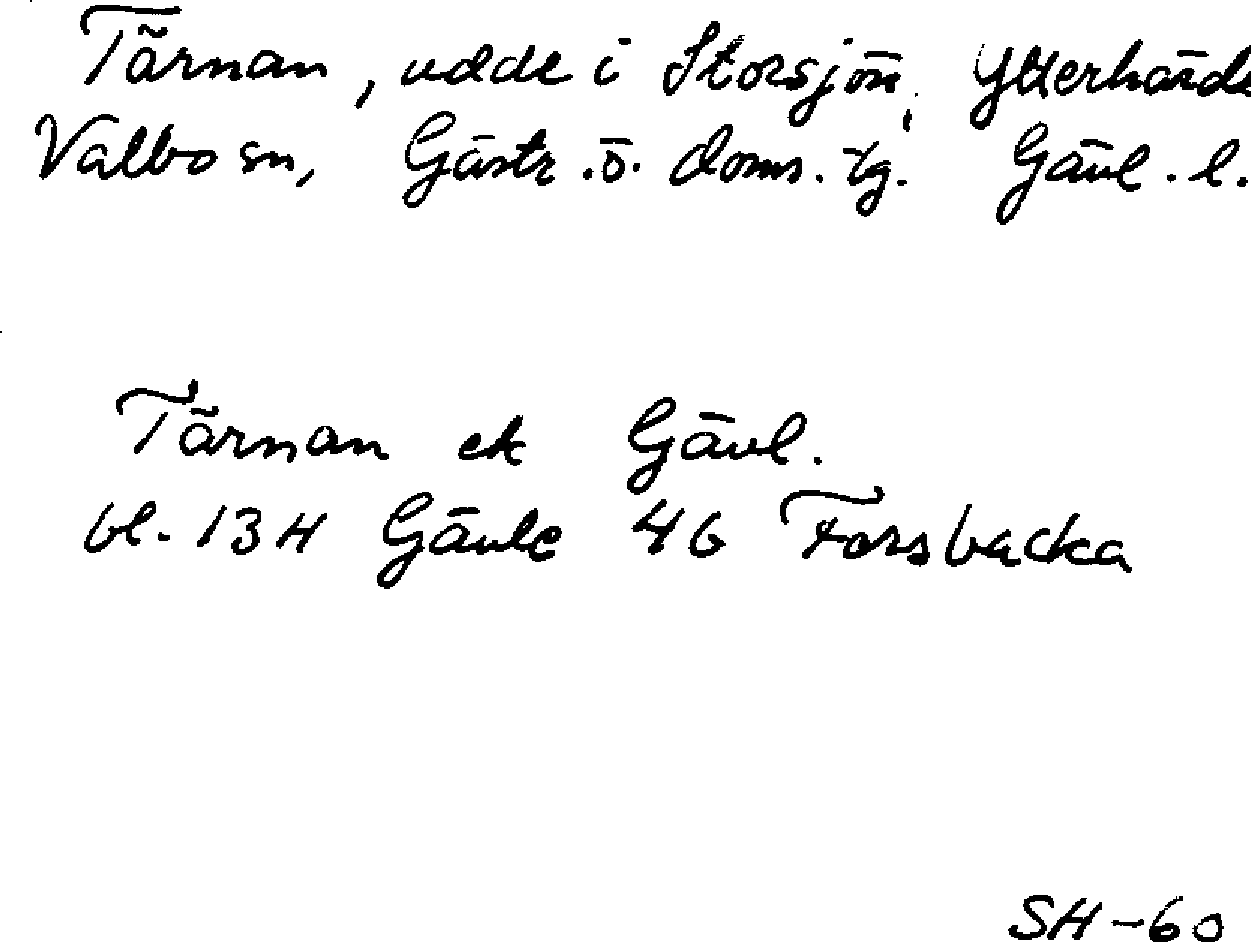 Tärnan, udde i Storsjön, Ytterhärde
Valbo sn, Gästr. ö. doms. tg. Gävl. l.
Tärnan ek Gävl.
bl. 13H Gävle 4G Forsbacka
SH-60